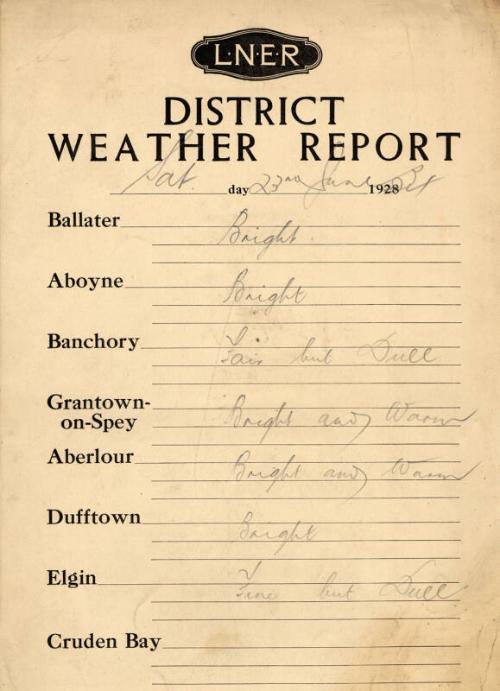 L·N·E·R
DISTRICT
WEATHER REPORT
Sat. day 23rd June 1928
Ballater
Bright.
Aboyne
Bright
Banchory
Fair but Dull
Grantown-
on-Spey Bright and Warm
Aberlour
Bright and Warm
Dufftown
Bright
Elgin
Fine but Dull
Cruden Bay